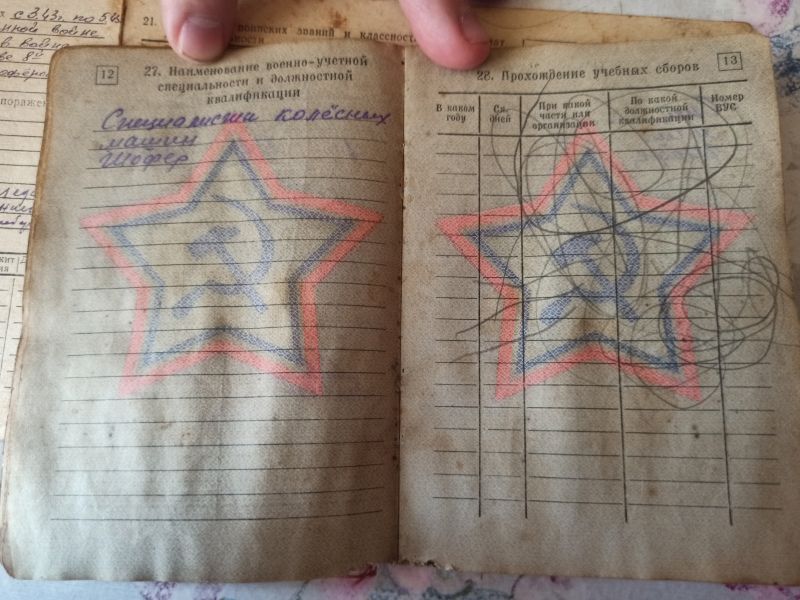 с 3.43г. по 5.45
войне
21.
воинских званий и классност
12
27. Наименование военно-учетной
специальности и должностной
квалификации
Специалисты колёсных
машин
Шофер
13
28. Прохождение учебных сборов
В каком году
дней
При какой части или организации
По какой должностной квалификации
Номер ВУС